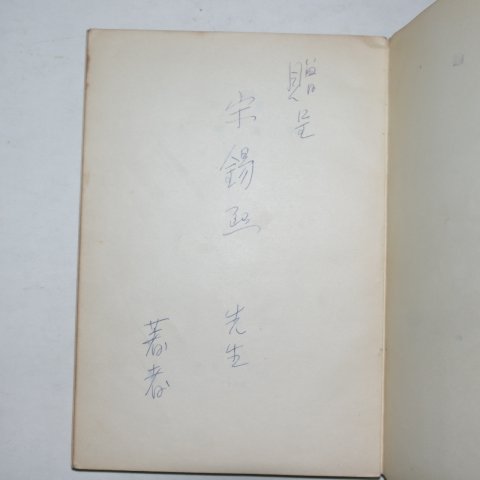 贈呈
宋錫熙 先生
著者